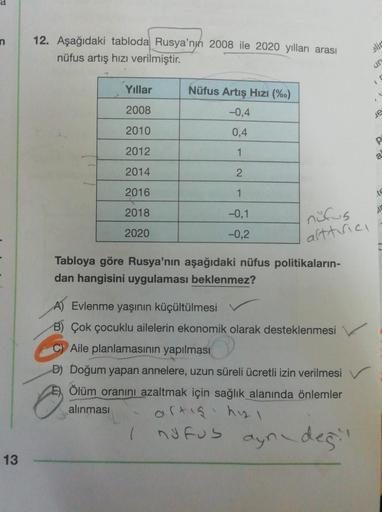 12. Aşağıdaki tabloda Rusya'nın 2008 ile 2020 yılları arası
nüfus artış hızı verilmiştir.
Yıllar Nüfus Artış Hızı (‰)
2008 –0,4
2010 0,4
2012 1
2014 2
2016 1
2018 –0,1
2020 –0,2
nüfus
arttırıcı
Tabloya göre Rusya'nın aşağıdaki nüfus politikaların-
dan hangisini uygulaması beklenmez?
A) Evlenme yaşının küçültülmesi
B) Çok çocuklu ailelerin ekonomik olarak desteklenmesi
C) Aile planlamasının yapılması
D) Doğum yapan annelere, uzun süreli ücretli izin verilmesi
E) Ölüm oranını azaltmak için sağlık alanında önlemler
alınması
artış hızı
nüfus aynı değil
13